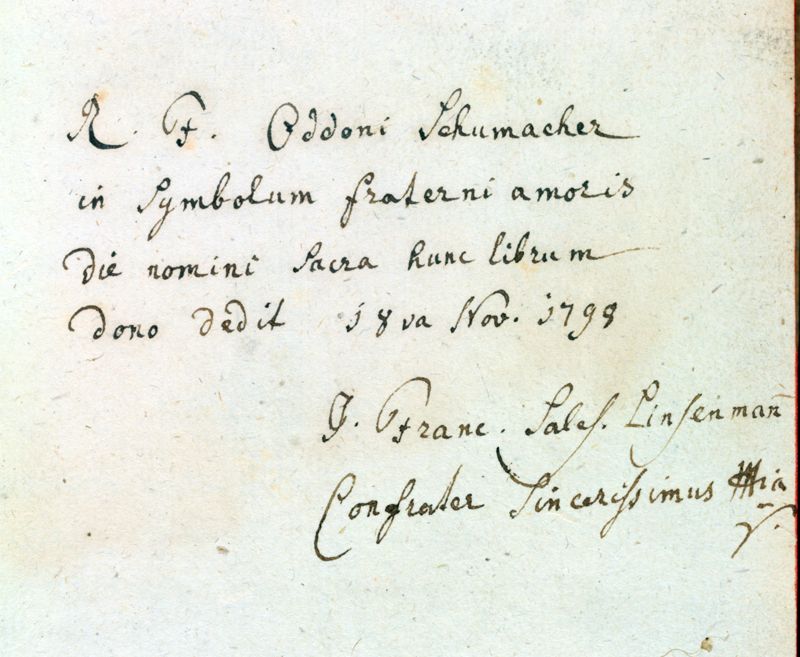 R. F. Oddoni Schumacher
in Symbolum fraterni amoris
die nomini sacra hunc librum
dono dedit 18va Nov. 1798
F. Franc. Sales. Linsenman̄
Confrater Sincerissimus